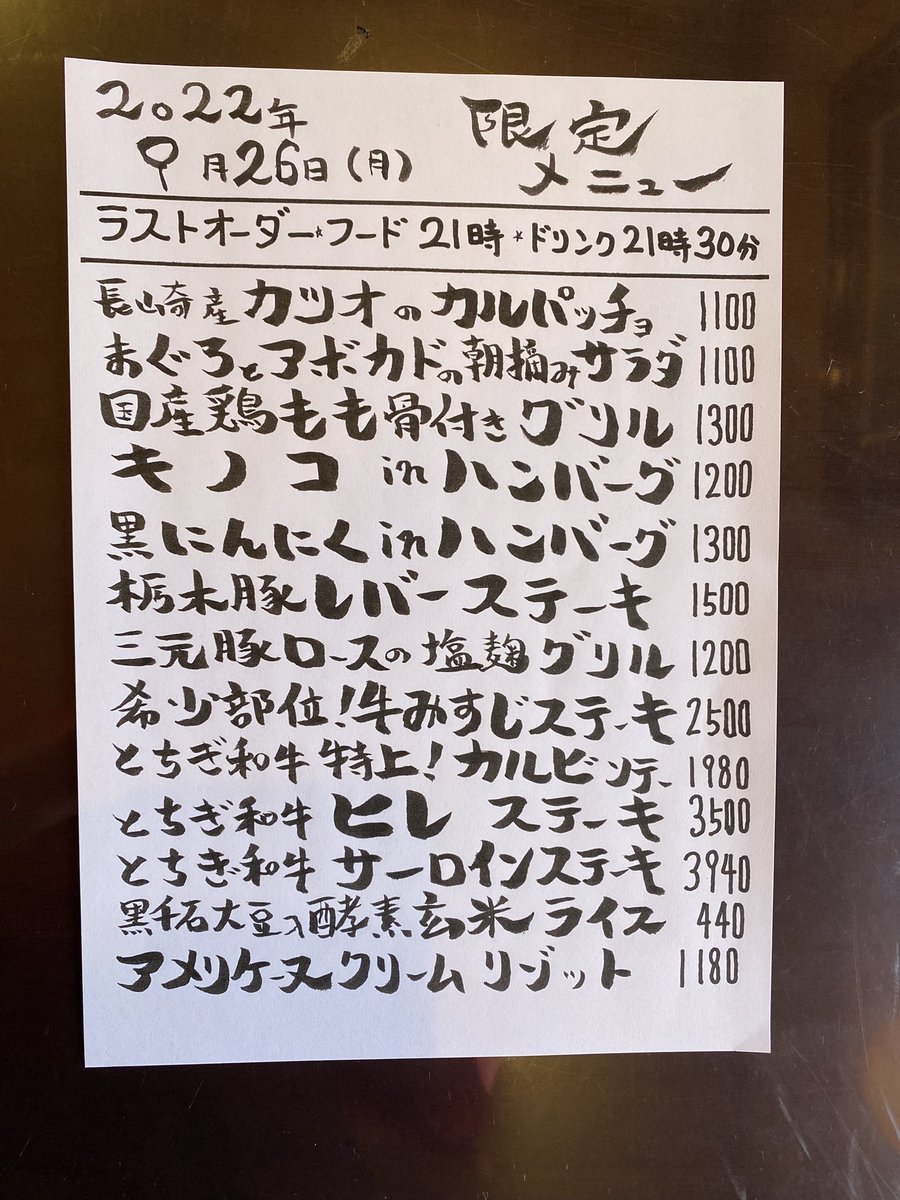 2022年
9月26日(月)
限定
メニュー
ラストオーダー*フード 21時 *ドリンク21時30分
長崎産 カツオのカルパッチョ 1100
まぐろとアボカドの朝摘みサラダ 1100
国産鶏もも骨付きグリル 1300
キノコ in ハンバーグ 1200
黒にんにく in ハンバーグ 1300
栃木豚レバーステーキ 1500
三元豚ロースの塩麹グリル 1200
希少部位!牛みすじステーキ 2500
とちぎ和牛 特上!カルビソテー 1980
とちぎ和牛 ヒレ ステーキ 3500
とちぎ和牛 サーロインステーキ 3940
黒千石大豆入酵素玄米ライス 440
アメリケーヌクリームリゾット 1180